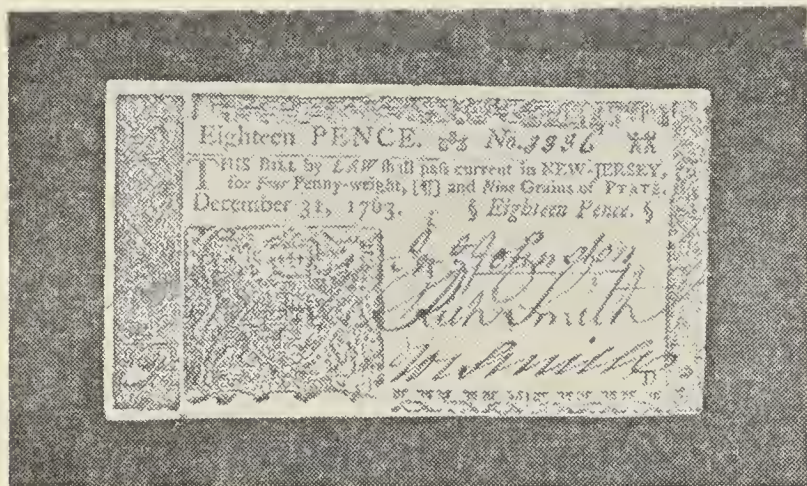 Eighteen PENCE. No. 3936
THIS BILL by LAW shall pass current in NEW-JERSEY,
for Four Penny-weight, [¶] and Nine Grains of PLATE.
December 31, 1763. § Eighteen Pence. §
Johnston
Smith
Smith